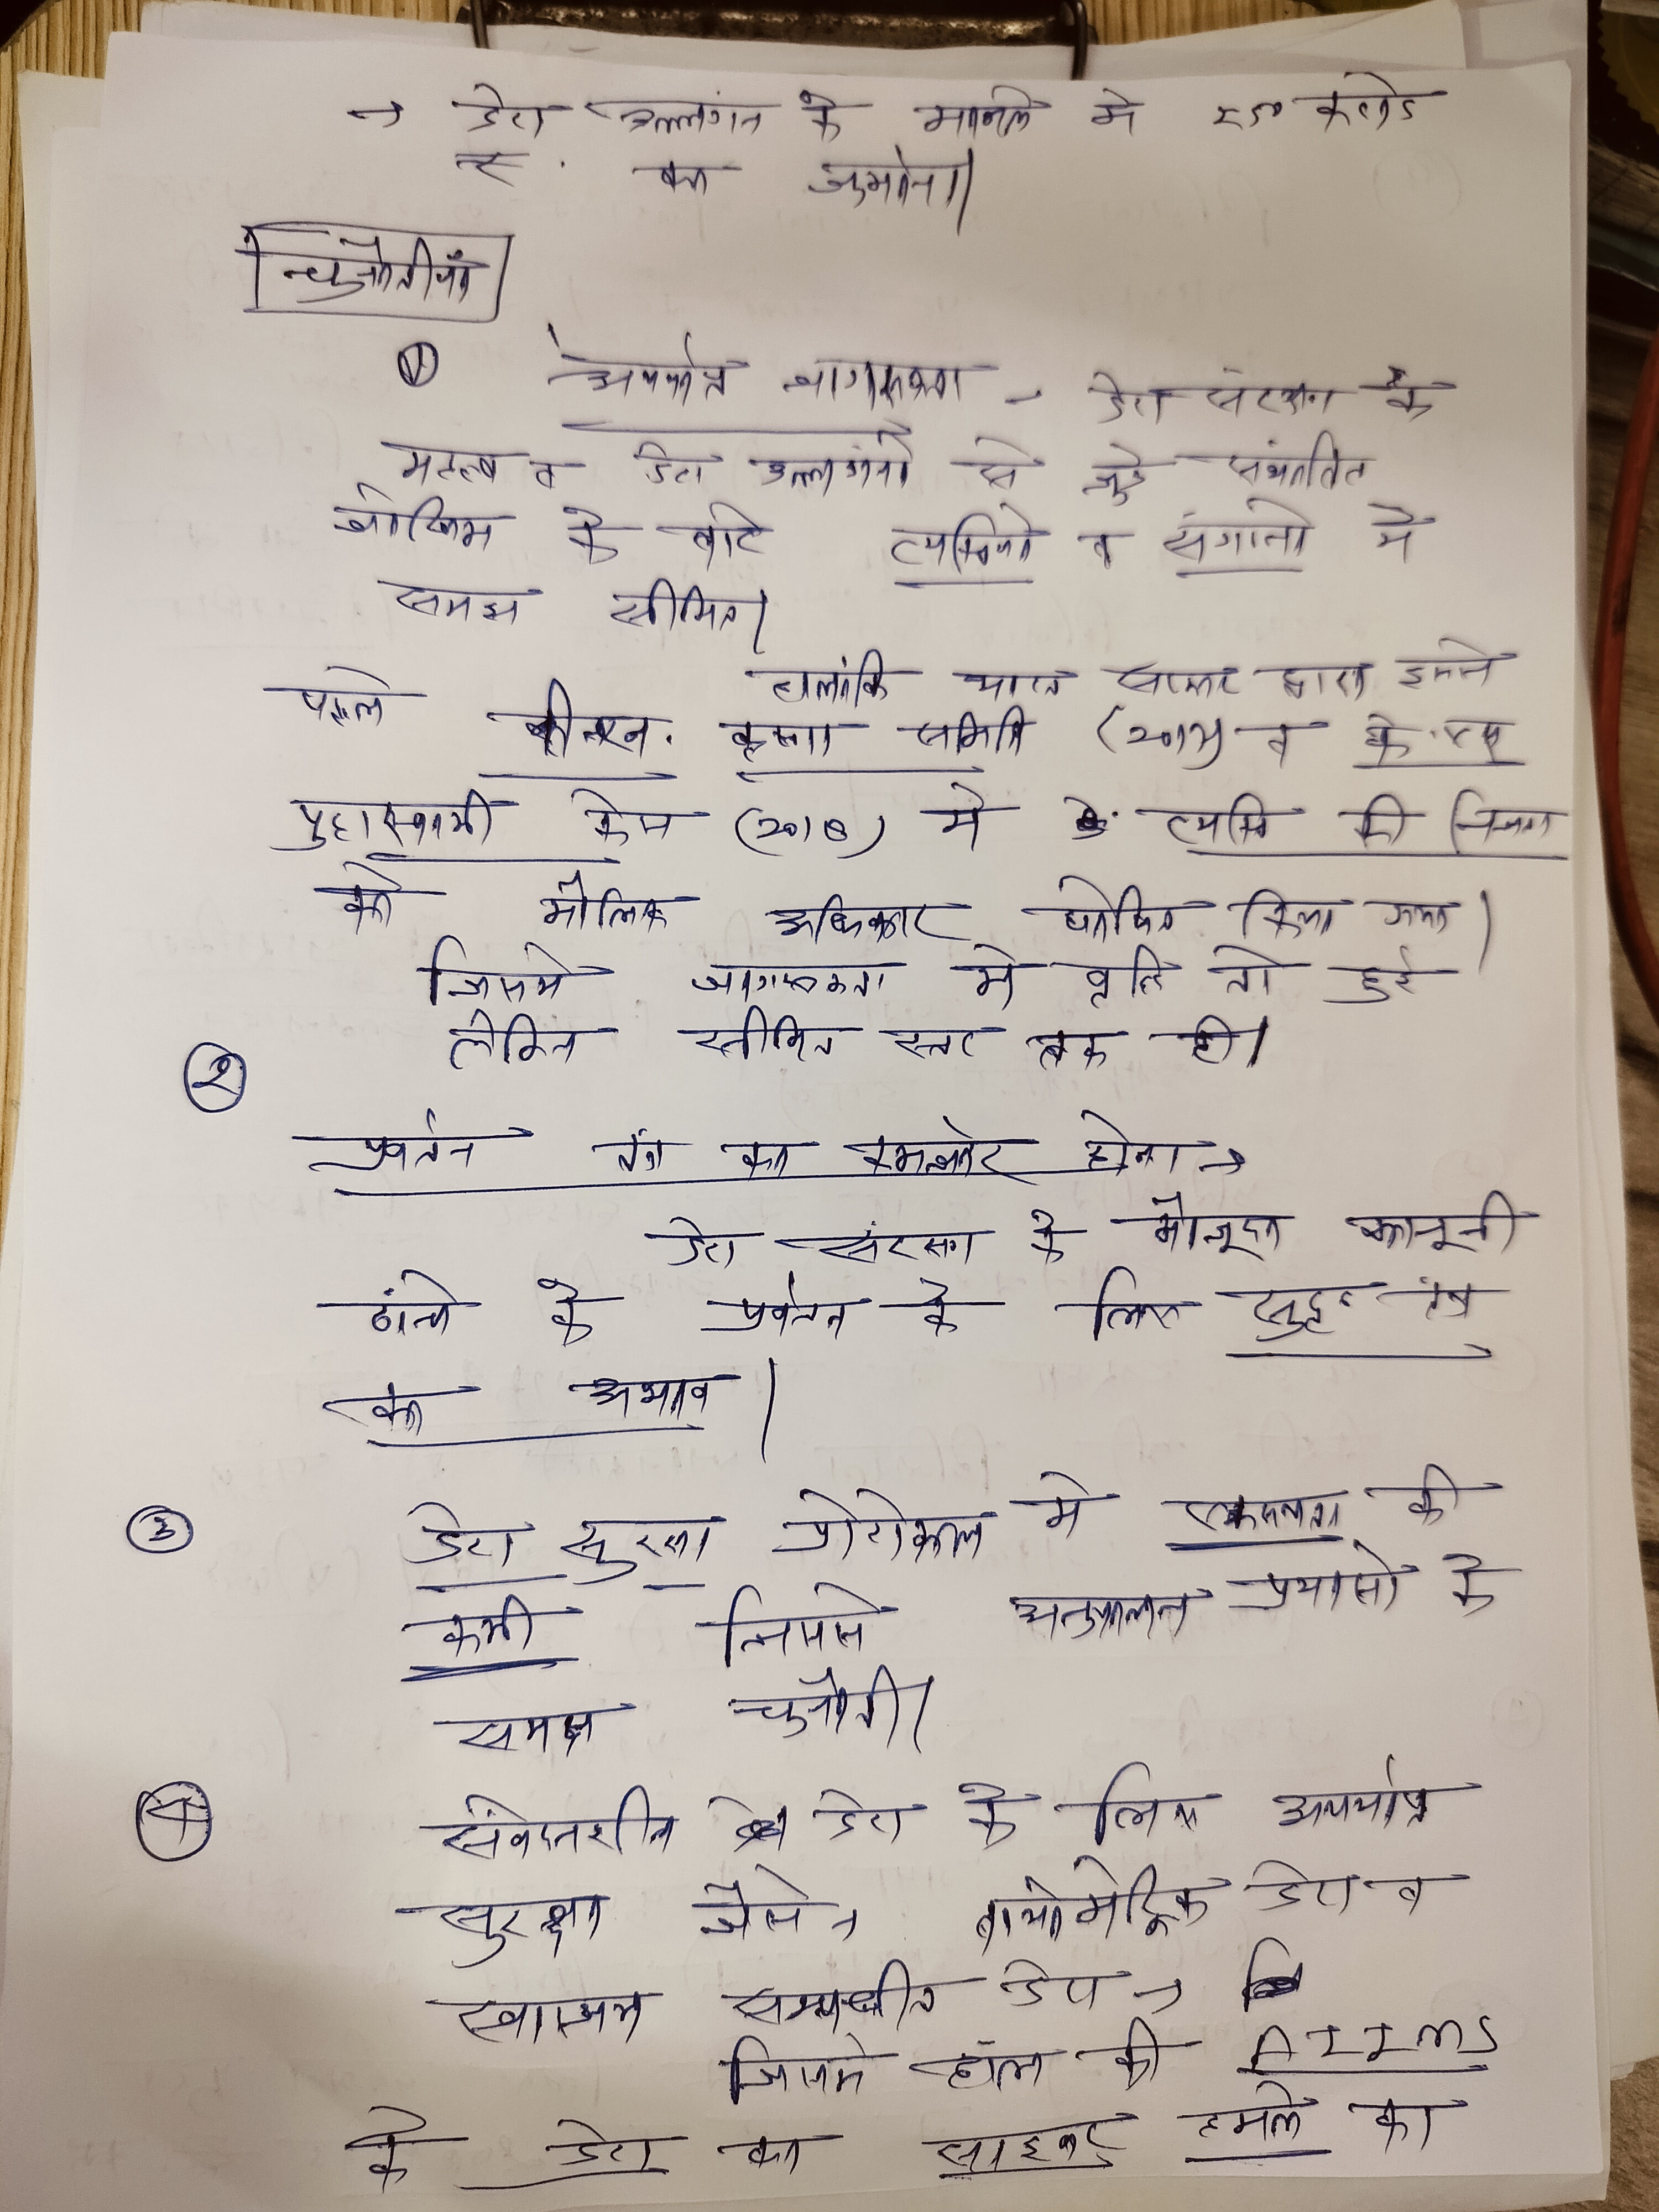 → डेटा उल्लंगन के मामले मे २५० करोड
रु. का जुर्माना।
चुनौतीयाँ
① अपर्याप्त जागरूकता → डेटा संरक्षण के
महत्व व डेटा उल्लगंनो से जुडे संभावित
जोखिम के बारे व्यक्तियो व संगठनो मे
समझ सीमित।
हालांकि भारत सरकार द्वारा इससे
पहले बी.एन. कृष्णा समिति (2017) व के.एस
पुट्टास्वामी केस (2018) मे व्यक्ति की निजता
को मौलिक अधिकार घोषित किया गया।
जिससे जागरूकता मे वृद्धि तो हुई
लेकिन सीमित स्तर तक ही।
②
प्रवर्तन तंत्र का कमजोर होना →
डेटा संरक्षण के मौजूदा कानूनी
ढांचे के प्रवर्तन के लिए सुदृढ तंत्र
का अभाव।
③ डेटा सुरक्षा प्रोटोकाल मे एकरूपता की
कमी जिससे अनुपालन प्रयासो के
समक्ष चुनौती।
④ संवेदनशील डेटा के लिए अपर्याप्त
सुरक्षा जैसे → बायोमेट्रिक डेटा व
स्वास्थ्य सम्बन्धीत डेटा →
जिसमे हाल की AIIMS
के डेटा का साइबर हमले का